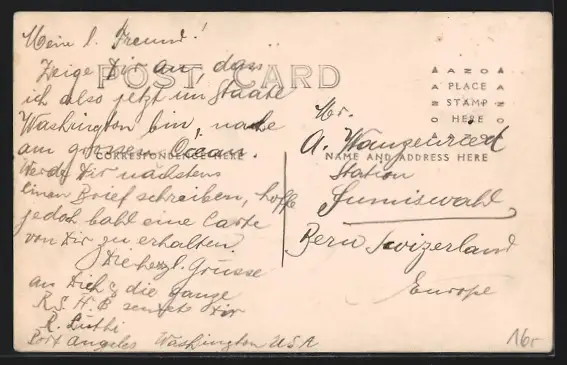 Mein l. Freund!
Zeige Dir an, dass
POST CARD
ich also jetzt im Staate
Washington bin, nahe
am grossen Ocean.
CORRESPONDENCE HERE
Werde Dir nächstens
einen Brief schreiben, hoffe
jedoch bahl eine Carte
von Dir zu erhalten.
Die herzl. Grüsse
an Dich & die ganze
R.S.H.B sendets Dir
R. Lüthi
Port Angeles Washington USA
AZO
PLACE
STAMP
HERE
AZO
Mr.
A. Wangenried
NAME AND ADDRESS HERE
Station
Sumiswahl
Bern Swizerland
Europe
16.-